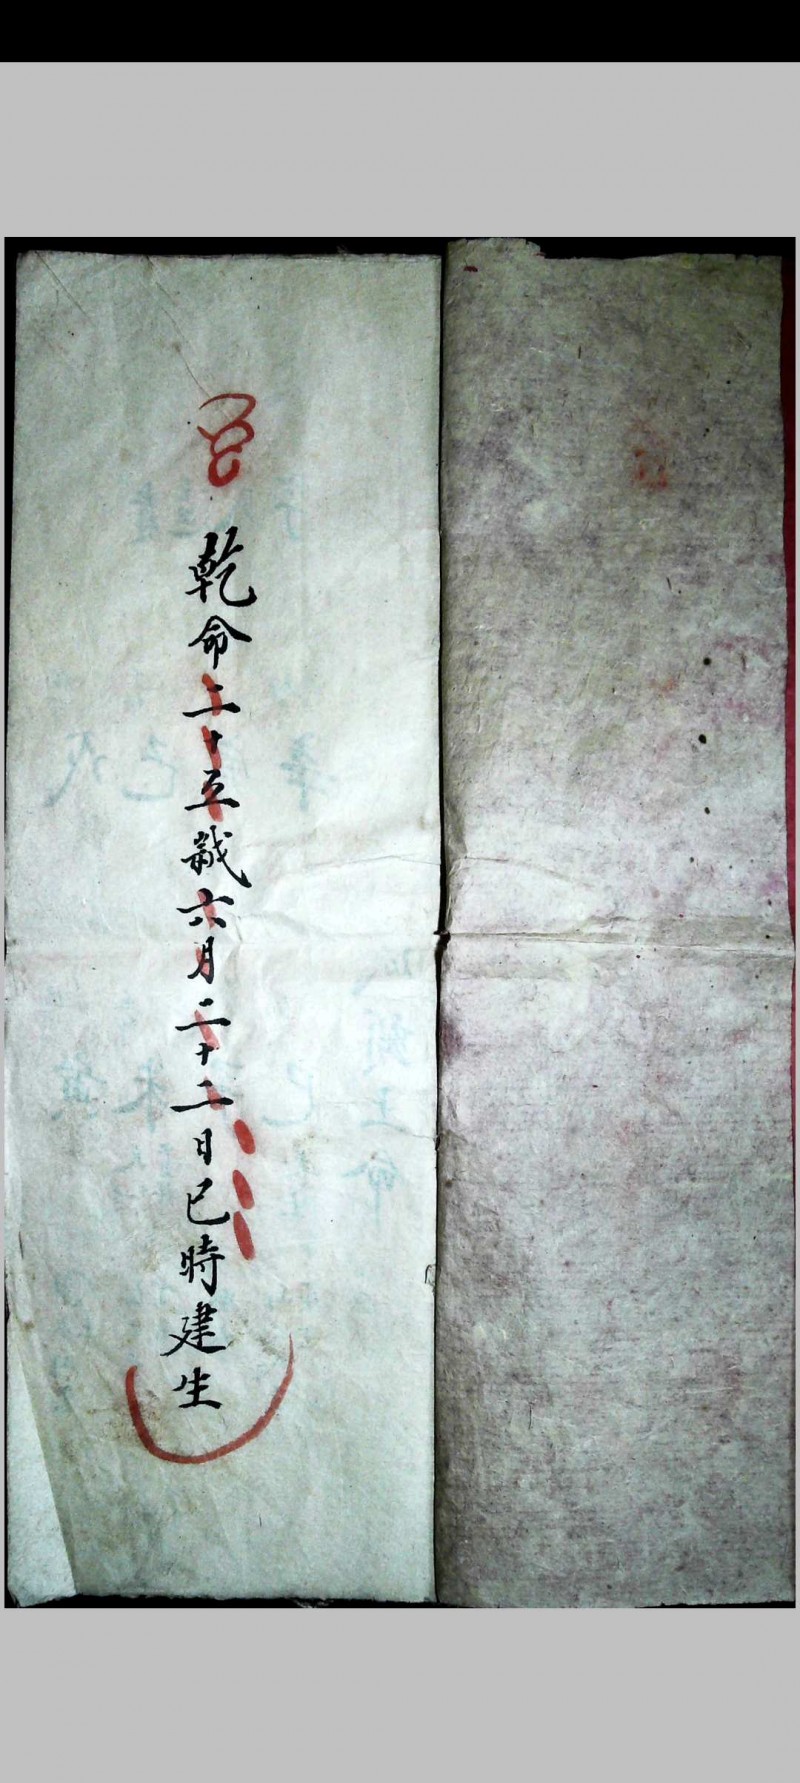 乾命二十五歲六月二十二日巳時建生